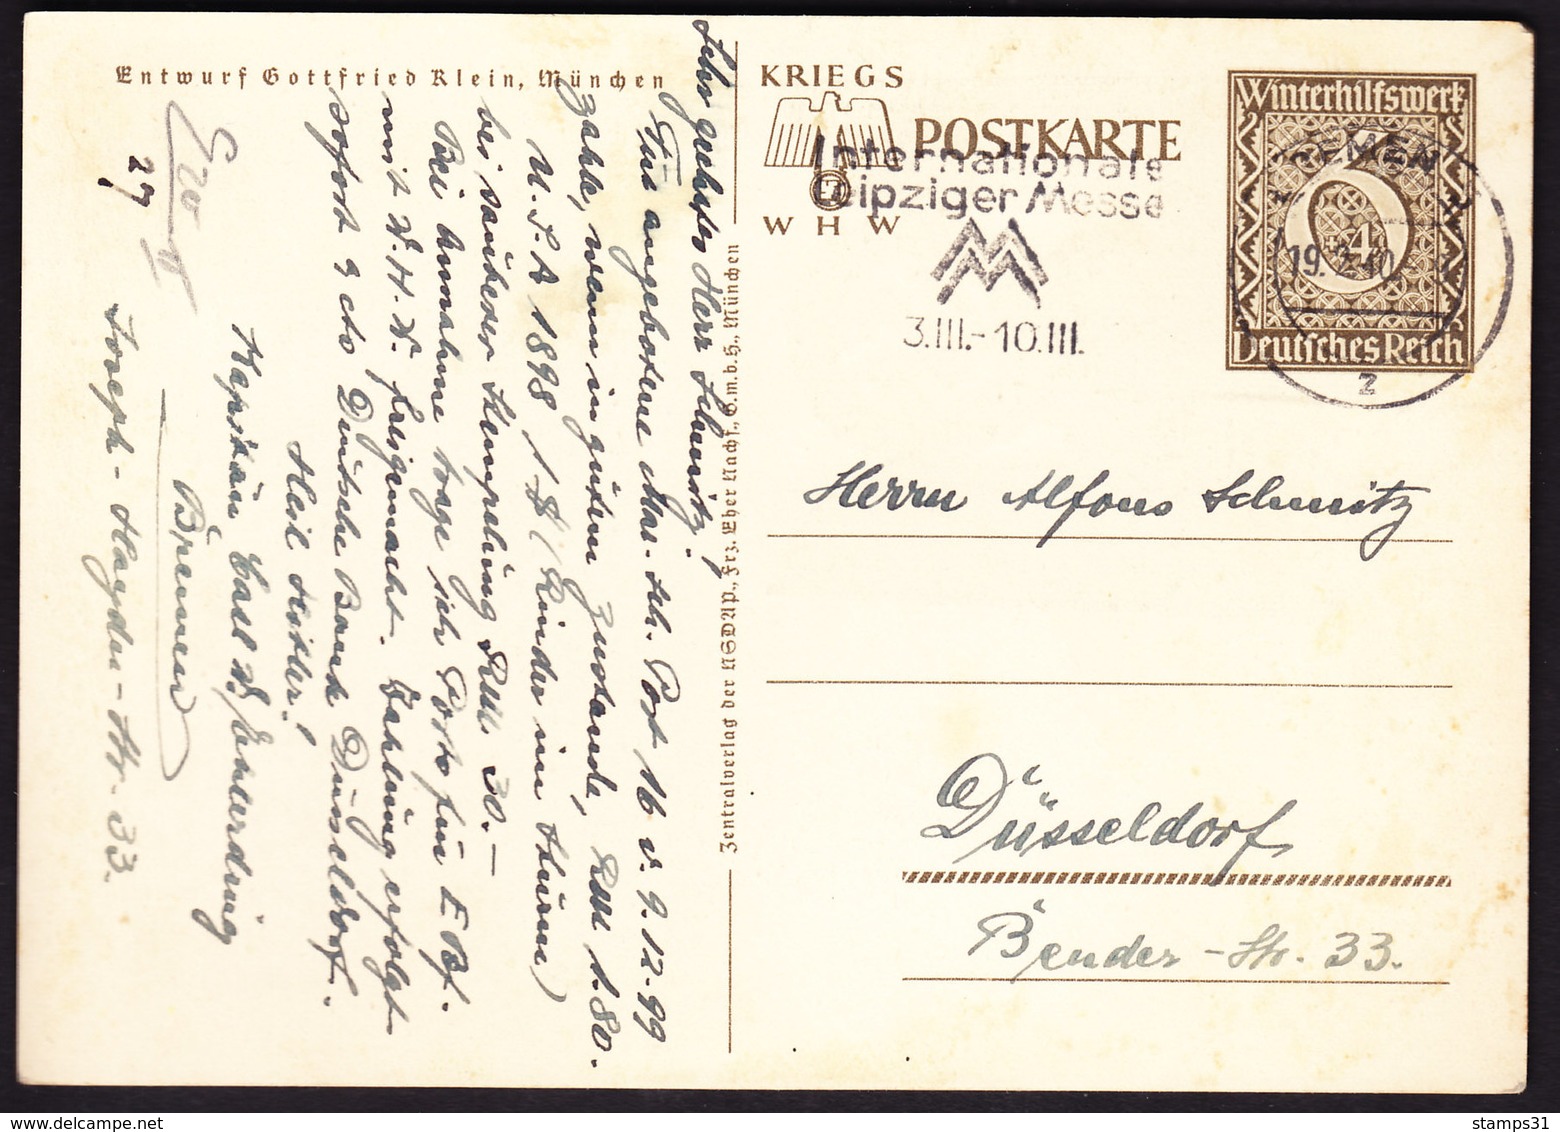 Entwurf Gottfried Klein, München
Sehr geehrter Herr Schmitz!
Für angebotene Mar.-Sch. Post 16 v. 9.12.99
zahle, wenn in gutem Zustande, RM 1.80.
U.S.A 1898 1 $ (Rinder im Sturm)
bei sauberer Stempelung RM. 30.—
Bei Annahme trage ich Porto für E Bf.
mit W.H.W. freigemacht. Zahlung erfolgt
sofort p cto Deutsche Bank Düsseldorf.
Heil Hitler!
Kapitän Carl W.
Bremen
Joseph-Haydn-Str. 33.
27
Zentralverlag der NSDAP., Frz. Eher Nachf., G.m.b.H., München
KRIEGS
POSTKARTE
WHW
Internationale
Leipziger Messe
MM
3.III.-10.III.
Winterhilfswerk
6
4
Deutsches Reich
BREMEN
19.2.40
z
Herrn Alfons Schmitz
Düsseldorf
Bender-Str. 33.
stamps31